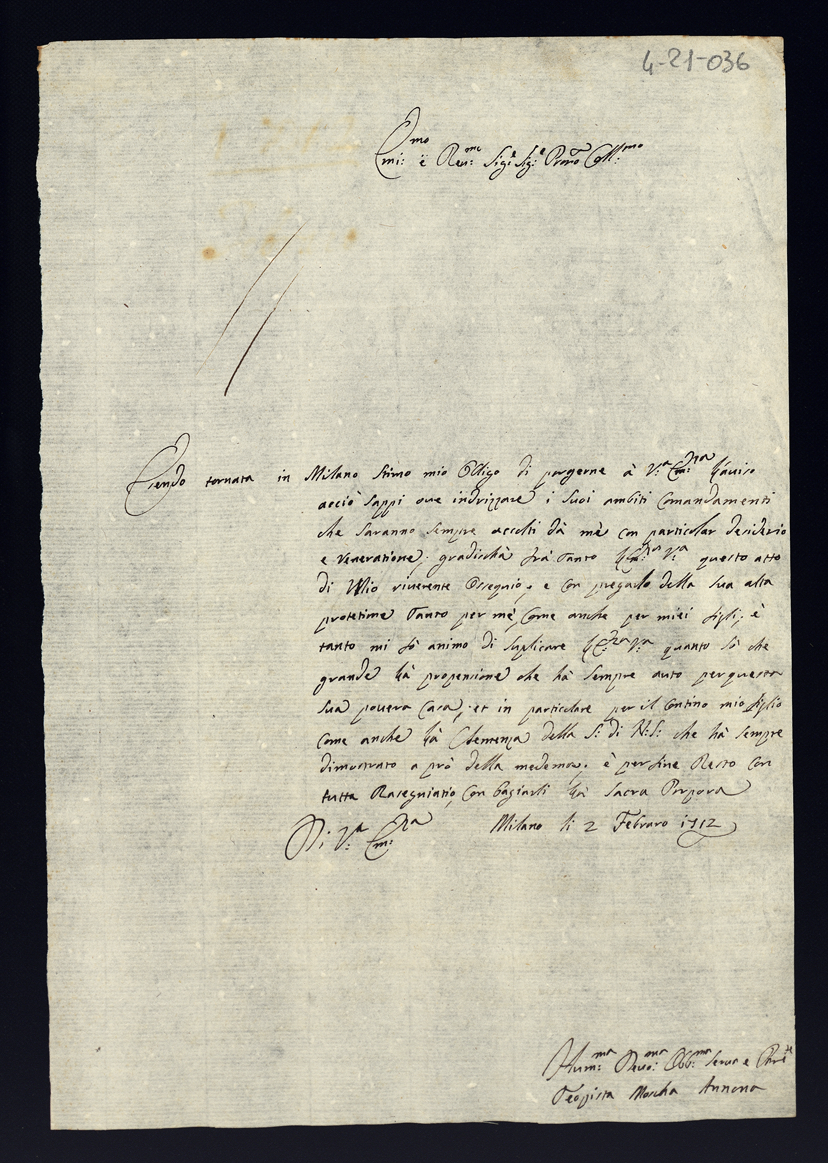 4-21-036
Emi:mo e Reu:me Sig:e Sig:e Prone Coll:mo
Esendo tornata in Milano stimo mio Obligo di porgerne à V:a Em:za l'auiso
acciò sappi oue indrizzare i suoi ambiti Comandamenti
che saranno sempre accolti dà mè con particolar desiderio
e Veneratione; gradischà frà tanto l'Em:za V:a questo atto
di Mio riuerente Ossequio, e con pregarlo della sua alta
protetione tanto per mè, Come anche per miei figli; è
tanto mi fò animo di suplicare l'E:za V:a quanto sò che
grande là propensione che hà sempre auto per questa
sua pouera Casa; et in particolare per il Contino mio figlio
Come anche là Clemenza della S: di N:S: che hà sempre
dimostrato a prò della medema; è per fine Resto con
tutta Rasegniatio, con bagiarli là Sacra Porpora
Di V:a Em:za Milano li 2 Febraro 1712
Hum:ma Deuo:ma Obb:ma serua e
Teopista Annona